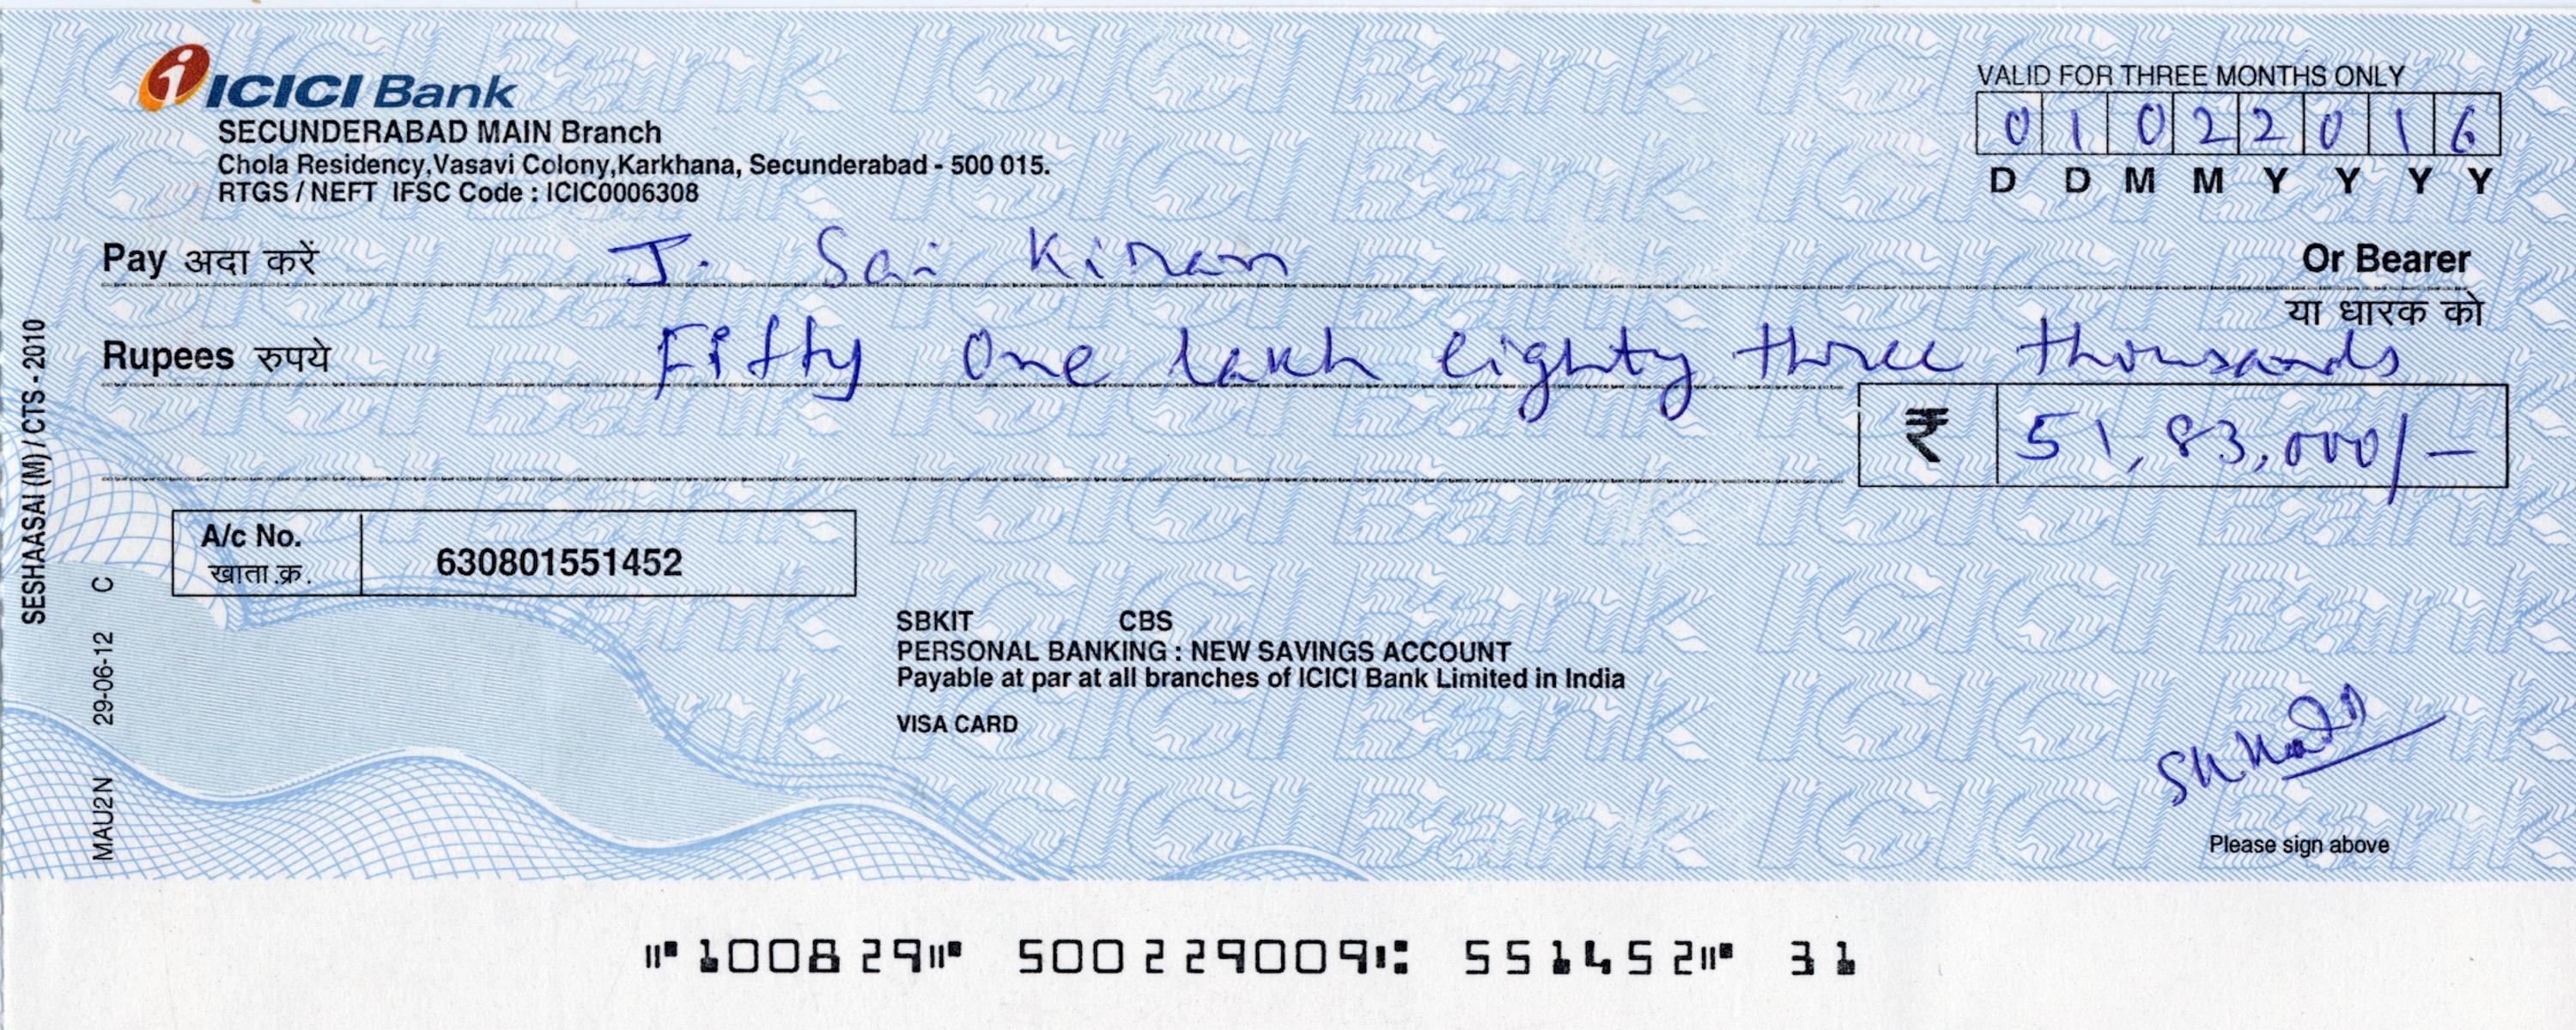 ICICI Bank
SECUNDERABAD MAIN Branch
Chola Residency,Vasavi Colony,Karkhana, Secunderabad - 500 015.
RTGS / NEFT IFSC Code : ICIC0006308
VALID FOR THREE MONTHS ONLY
0 1 0 2 2 0 1 6
D D M M Y Y Y Y
Pay अदा करें J. Sai Kiran Or Bearer
या धारक को
Rupees रुपये Fifty One lakh eighty three thousands
₹ 51,83,000/-
A/c No. 630801551452
खाता.क्र.
SBKIT CBS
PERSONAL BANKING : NEW SAVINGS ACCOUNT
Payable at par at all branches of ICICI Bank Limited in India
VISA CARD
Please sign above
SESHAASAI (M) / CTS - 2010
MAU2N 29-06-12 C
⑈100829⑈ 500229009⑆ 551452⑈ 31